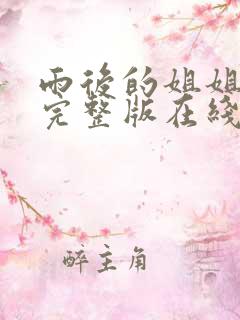 雨後的姐姐
完整版在綫
醉主角